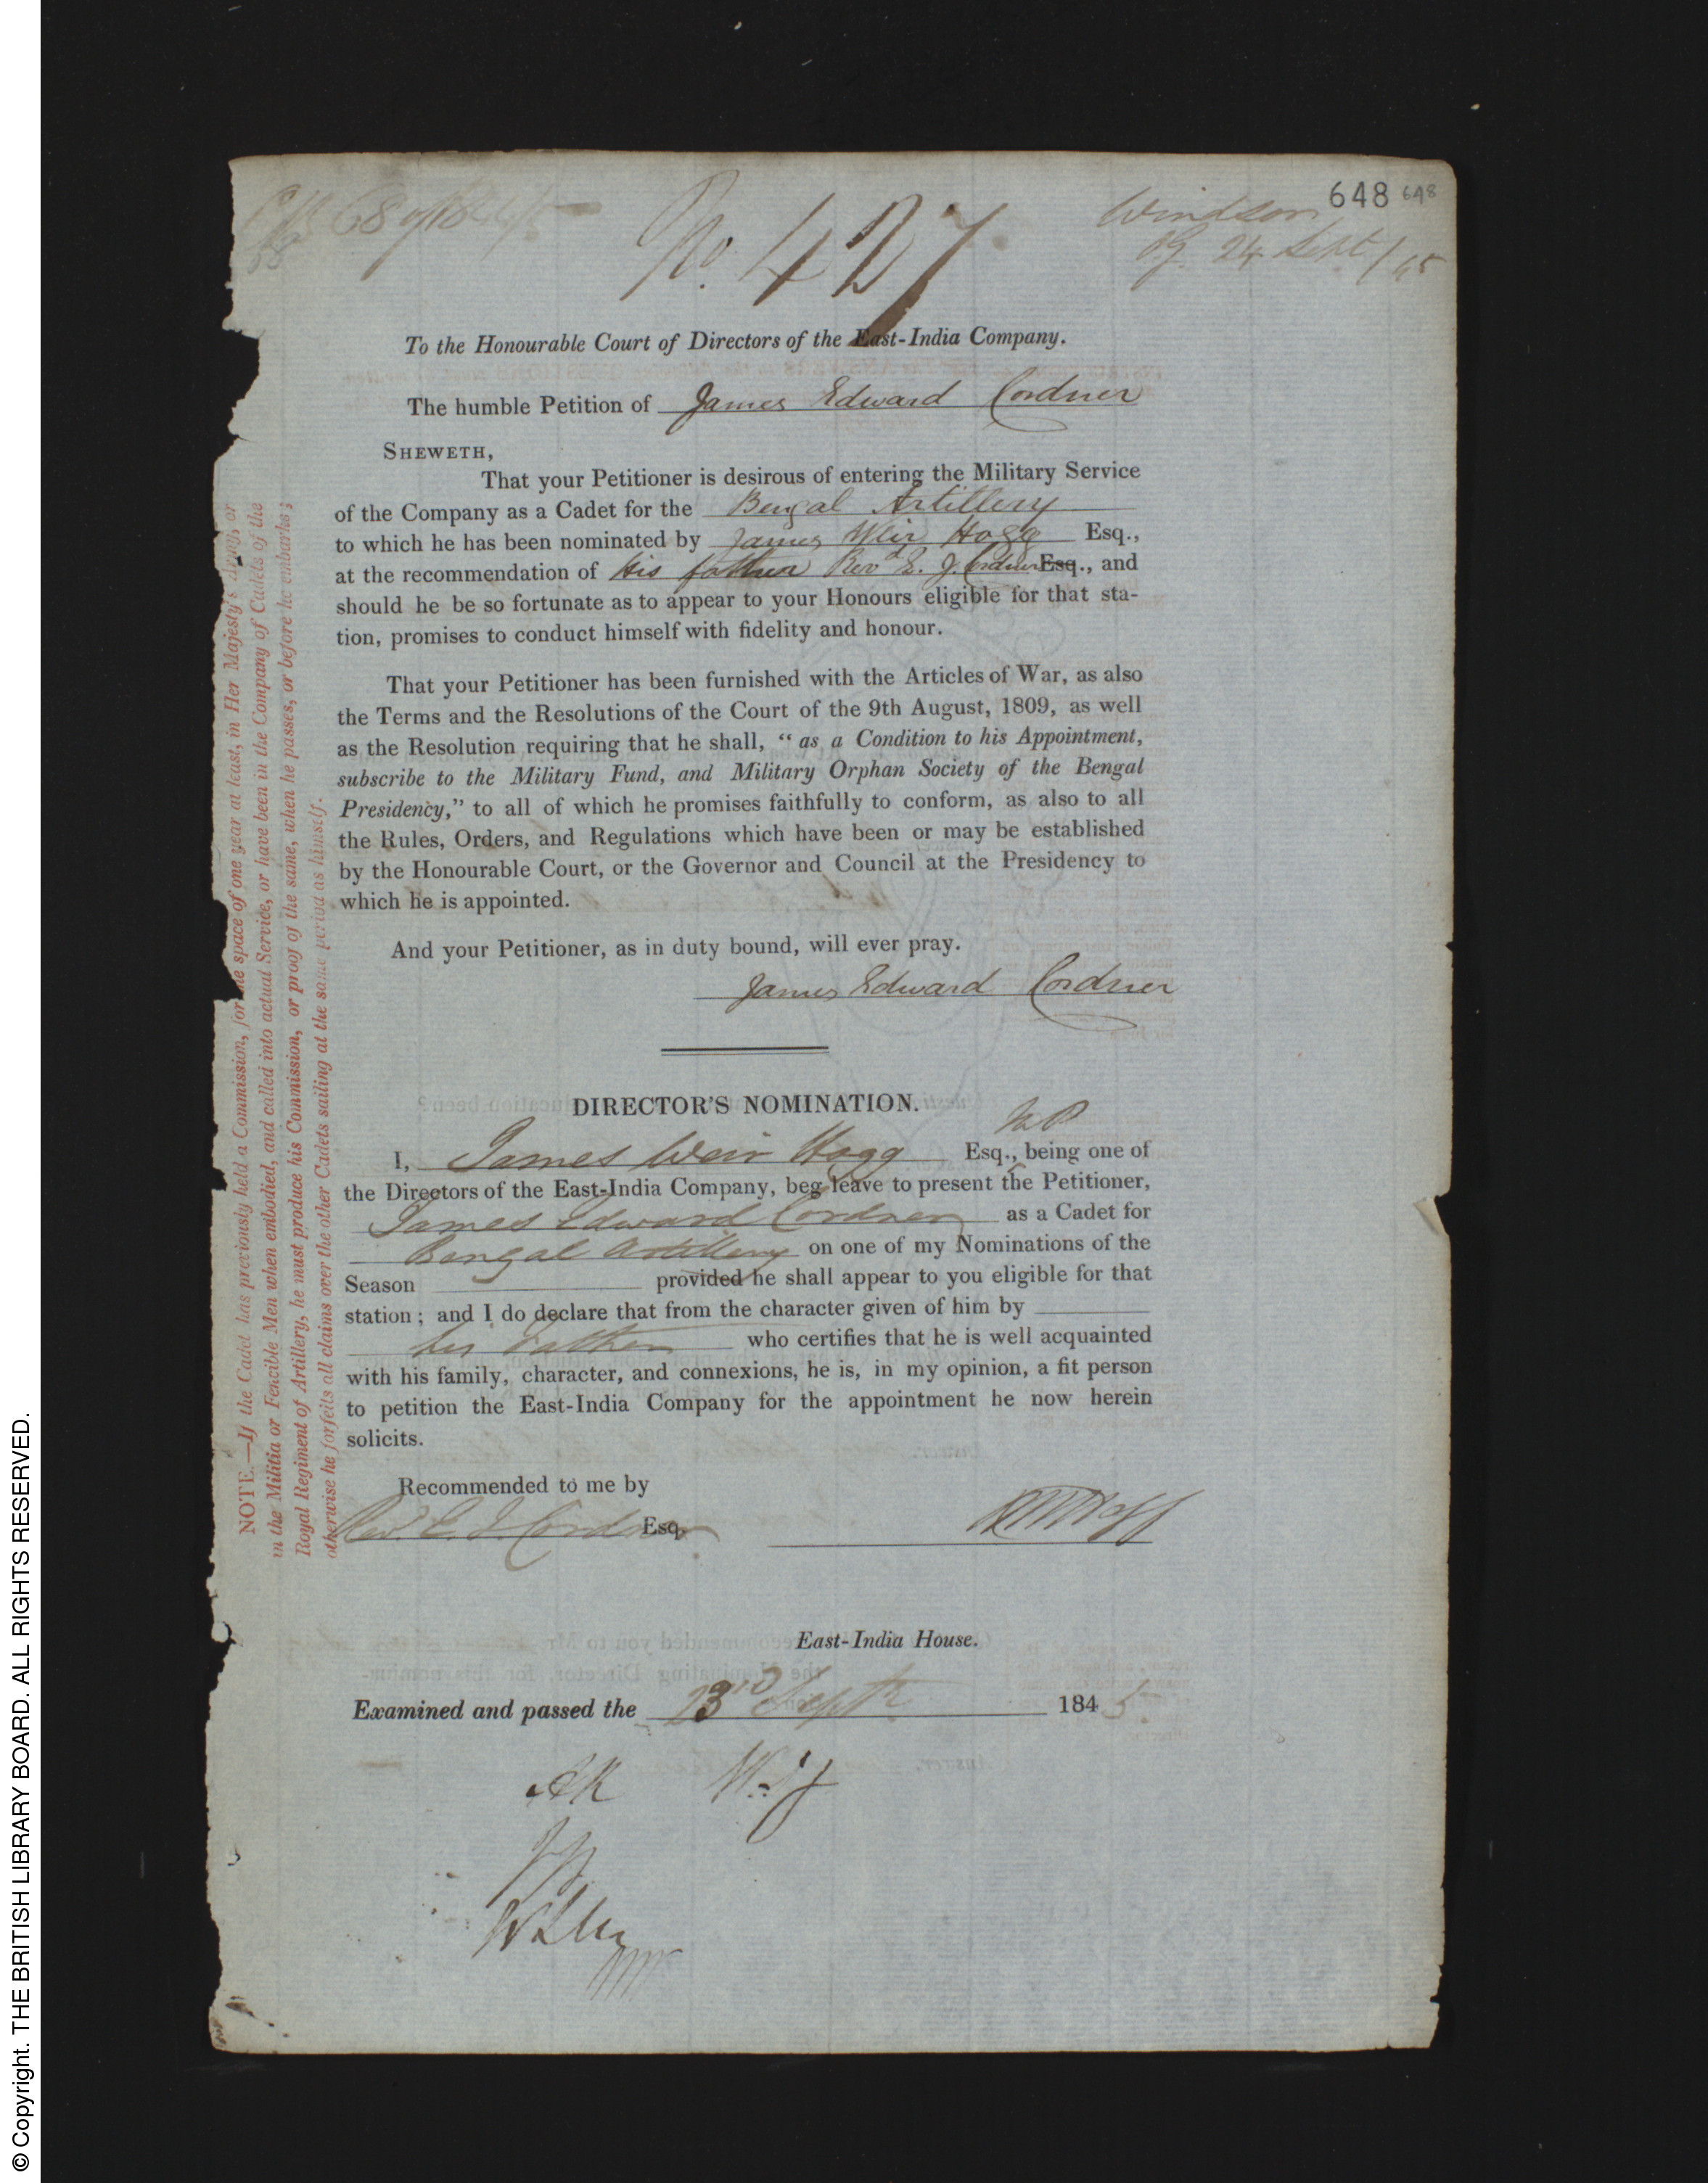 648 648
Windsor
24 Sept / 45
No. 427
To the Honourable Court of Directors of the East-India Company.
The humble Petition of James Edward Cordner
SHEWETH,
That your Petitioner is desirous of entering the Military Service
of the Company as a Cadet for the Bengal Artillery
to which he has been nominated by James Weir Hogg Esq.,
at the recommendation of His father Revd E. J. Cordner Esq., and
should he be so fortunate as to appear to your Honours eligible for that sta-
tion, promises to conduct himself with fidelity and honour.
That your Petitioner has been furnished with the Articles of War, as also
the Terms and the Resolutions of the Court of the 9th August, 1809, as well
as the Resolution requiring that he shall, "as a Condition to his Appointment,
subscribe to the Military Fund, and Military Orphan Society of the Bengal
Presidency," to all of which he promises faithfully to conform, as also to all
the Rules, Orders, and Regulations which have been or may be established
by the Honourable Court, or the Governor and Council at the Presidency to
which he is appointed.
And your Petitioner, as in duty bound, will ever pray.
James Edward Cordner
DIRECTOR'S NOMINATION.
MP
I, James Weir Hogg Esq., being one of
the Directors of the East-India Company, beg leave to present the Petitioner,
James Edward Cordner as a Cadet for
Bengal Artillery on one of my Nominations of the
Season provided he shall appear to you eligible for that
station; and I do declare that from the character given of him by
his Father who certifies that he is well acquainted
with his family, character, and connexions, he is, in my opinion, a fit person
to petition the East-India Company for the appointment he now herein
solicits.
Recommended to me by
Revd. E. J. Cordner Esq. JWHogg
East-India House.
Examined and passed the 23rd Septr 1845.
NOTE.—If the Cadet has previously held a Commission, for the space of one year at least, in Her Majesty's Army, or
in the Militia or Fencible Men when embodied, and called into actual Service, or have been in the Company of Cadets of the
Royal Regiment of Artillery, he must produce his Commission, or proof of the same, when he passes, or before he embarks;
otherwise he forfeits all claims over the other Cadets sailing at the same period as himself.
© Copyright. THE BRITISH LIBRARY BOARD. ALL RIGHTS RESERVED.